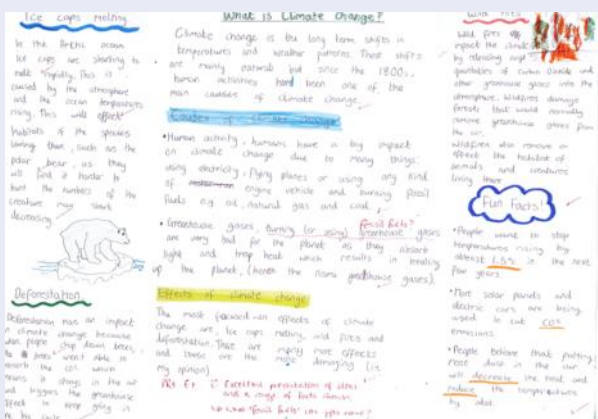 Ice caps melting
In the Arctic ocean
ice caps are starting to
melt rapidly. This is
caused by the atmosphere
and the ocean temperatures
rising. This will effect
habitats of the species
living there, such as the
polar bear, as they
will find it harder to
hunt the numbers of the
creature may start
decreasing
Deforestation
Deforestation has an impact
on climate change because
when people chop down trees,
the trees aren't able to
absorb the CO2 which
means it stays in the air
and triggers the greenhouse
effect to keep going in
What is Climate Change?
Climate change is the long term shifts in
temperatures and weather patterns. These shifts
are mainly natural but since the 1800s,
human activities had been one of the
main causes of climate change.
Causes of climate change
• Human activity, humans have a big impact
on climate change due to many things:
using electricity, flying planes or using any kind
of engine vehicle and burning fossil
fuels e.g oil, natural gas and coal.
fossil fuels?
• Greenhouse gases, burning (or using) greenhouse gases
are very bad for the planet as they absorb
light and trap heat which results in heating
up the planet, (hence the name greenhouse gases).
Effects of climate change
The most focused on effects of climate
change are, ice caps melting, wild fires and
deforestation. There are many more effects
and these are the more damaging (in
my opinion)
Excellent presentation of ideas
and a range of facts chosen.
what 'fossil fuels' can you name?
Wild fires
Wild fires
impact the climate
by releasing large
quantities of Carbon Dioxide and
other greenhouse gases into the
atmosphere. Wildfires damage
forests that would normally
remove greenhouse gases from
the air.
Wildfires also remove or
effect the habitat of
animals and creatures
living there
Fun Facts!
• People want to stop
temperatures rising by
atleast 1.5°C in the next
few years.
• More solar panels and
electric cars are being
used to cut CO2
emissions.
• People believe that putting
more dust in the air
will decrease the heat and
reduce the temperatures
by alot.